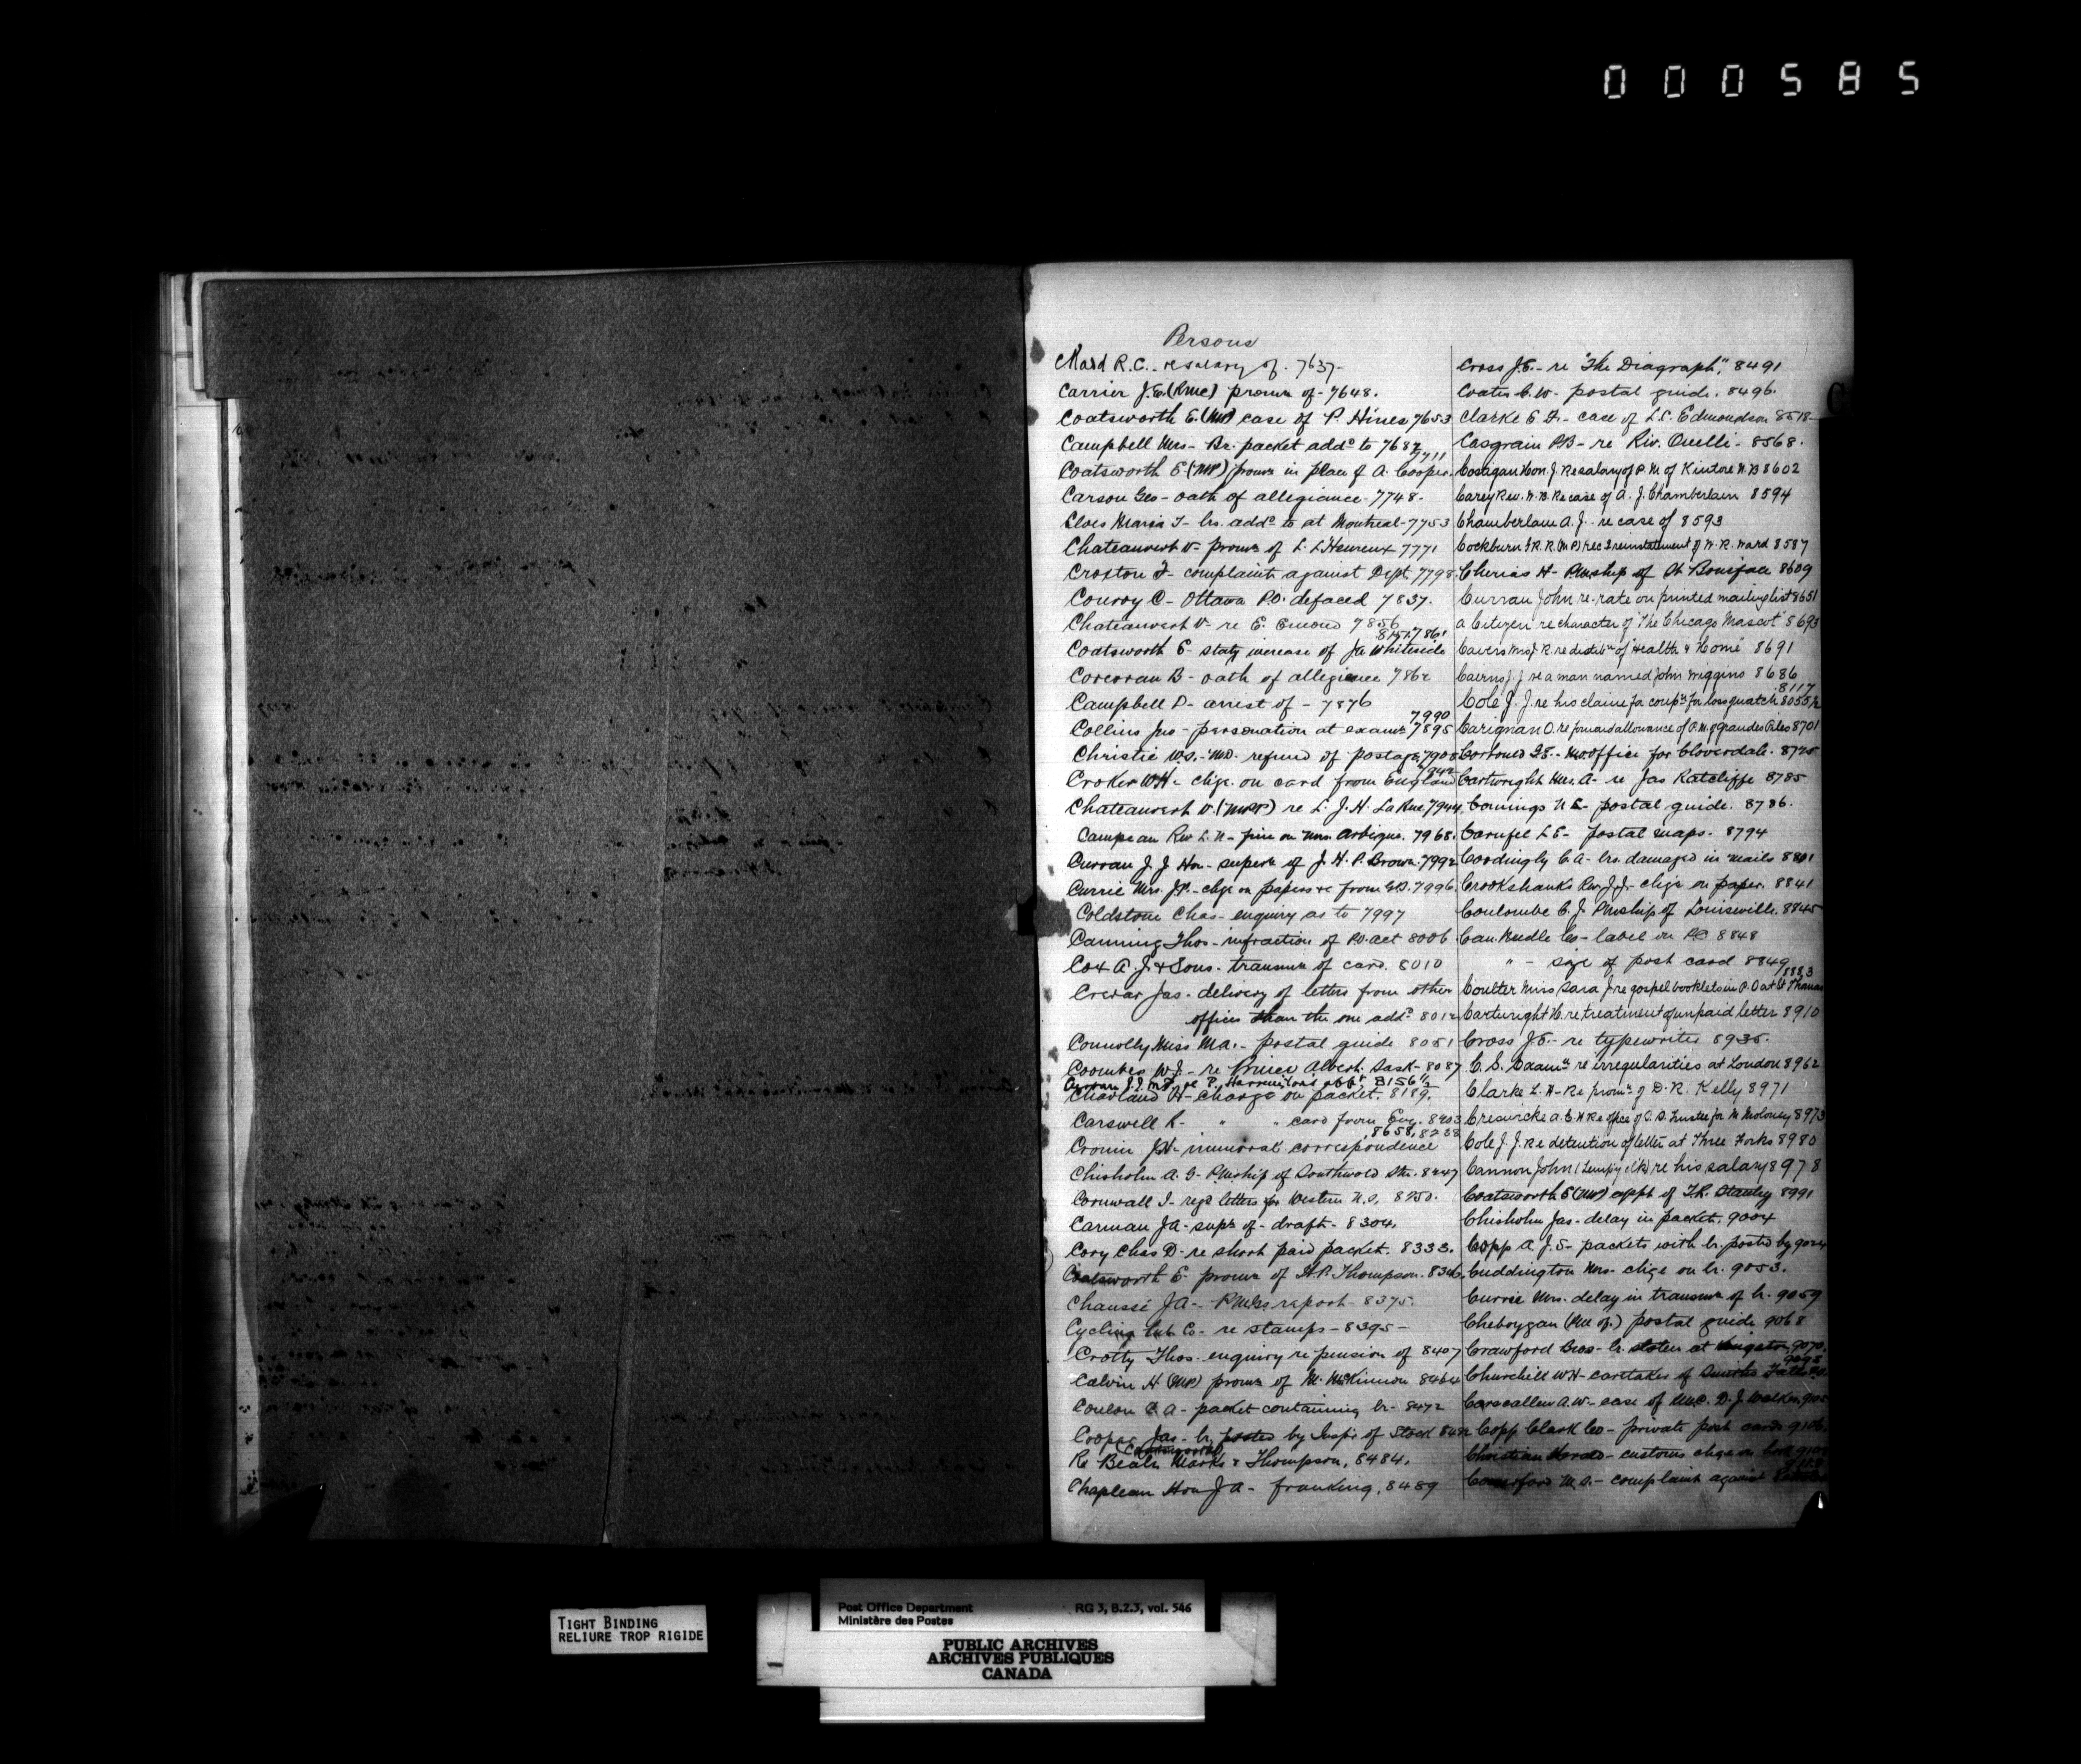 000585
Persons
R.C. re salary of. 7637-
Carrier J.E. (RMC) promn of - 7648.
Coatsworth E. (MP) case of P. Hines 7653
Campbell Mrs - Br. packet addd to 7682
7711
Coatsworth E (MP) promn in place of A. Cooper.
Carson Geo - oath of allegiance - 7748.
Maria T - lr. addd to at Montreal - 7753
Chateauvert V - promn of L. L'Heureux 7771
Croxton F - complaint against Dept 7798
Conroy C - Ottawa P.O. defaced 7837.
Chateauvert V - re E. Emond 7856
7861
Coatsworth E - staty increase of Ja Whiteside
Corcoran B - oath of allegiance 7862
Campbell D - arrest of - 7876
7990
Collins Jno - personation at examn 7895
Christie W.S. - MD - refund of postage, 7908
Croker WH - chge. on card from England
Chateauvert V. (MPP) re L. J. H. LaRue 7944.
Campeau Rev L. N - fine on Mrs. 7968.
Curran J J Hon - supern of J. H. P. Brown. 7992
Currie Mrs. JP. - chge on papers &c from 7996
Coldstone Chas - enquiry as to 7997
Canning Thos - infraction of P.O. act 8006
Cox A. J. & Sons - transmn of card. 8010
Crerar Jas - delivery of letters from other
offices than the one addd 8012
Connolly Miss MA. - postal guide 8051
Coombes WJ - re Prince Albert. Sask - 8087
Curran J.J. MP. re P. appt 8156½
Charland H - charge on packet. 8189.
Carswell R. - " " card from Eng. 8203
8658, 8238
Cronin JH - immoral correspondence
Chisholm A. G - PMship of Southwold Stn. 8247
Cornwall I - regd letters for Western N.S. 8250.
Carman JA - supn of - draft - 8304.
Cory Chas D - re short paid packet. 8333.
Coatsworth E - promn of H.P. Thompson. 8346
Chaussé JA - report - 8375.
Cycling Co - re stamps - 8395 -
Crotty Thos - enquiry re pension of 8407
Calvin H (MP) promn of M. McKinnon 8464
Coulon A - packet containing lr - 8472
Cooper Jas - lr. posted by Inspr of Stock 8482
Re Beals Marks & Thompson, 8484.
Chapleau Hon JA - franking, 8489
Cross J.E. - re "The Diagraph", 8491
Coates C.W - postal guide. 8496.
Clarke E F. - case of L.S. Edmondson 8518
Casgrain PB - re Riv. Ouelle - 8568.
Costigan Hon. J. Re salary of P.M. of Kintore N.B 8602
Carey Rev. W.B. Re case of A. J. Chamberlain 8594
Chamberlain A. J. re case of 8593
Cockburn G.R.R. (MP) re reinstatement of W.R. Ward 8587
H - PMship of St Boniface 8609
Curran John re rate on printed mailing list 8651
a Citizen re character of "The Chicago Mascot" 8693
Cavers Mrs J R. re distribn of "Health & Home" 8691
Cairns J. J re a man named John Wiggins 8686
8117
Cole J. J. re his claim for compn for loss of watch 8055½
Carignan O. re forward allowance of P.M. of Grandes Piles 8701
- M.O. office for Cloverdale. 8725
Cartwright Mrs. A - re Jas Ratcliffe 8785
Comings N E - postal guide. 8786.
Carufel L E - postal maps - 8794
Cordingly C A - lrs. damaged in mails 8801
Crookshanks Rev J.J. - chge on paper. 8841
Coulombe C. J PMship of Louiseville. 8845
Can. Needle Co - label on PC 8848
" - size of post card 8849
8883
Coulter Miss Sara J re gospel booklets in P.O at St Thomas
Cartwright H. re treatment of unpaid letter 8910
Cross J.E. - re typewriter 8935.
C. S. Examrs re irregularities at London 8962
Clarke L. H - Re promn of D. R. Kelly 8971
Creswicke A.E.H Re office of O.S. Trustee for M Moloney 8973
Cole J. J. Re detention of letter at Three Forks 8980
Cannon John (Tempy clk) re his salary 8978
Coatsworth E (MP) appt of T.R. Stanley 8991
Chisholm Jas - delay in packet. 9004
Copp A J.S - packets with lr. posted by 9024
Cuddington Mrs - chge on lr. 9053.
Currie Mrs. delay in transmn of lr. 9059
Cheboygan (PM of) postal guide 9068
Crawford Bros - lr. stolen at Kingston 9070.
9098
Churchill WH - caretaker of Smiths Falls P.O.
Carscallen A.W. - case of D. J. Walker, 905
Copp Clark Co - private post cards 9106.
Christian - customs chge on
Comerford M. - complaint against
C
TIGHT BINDING
RELIURE TROP RIGIDE
Post Office Department
Ministère des Postes
RG 3, B.2.3, vol. 546
PUBLIC ARCHIVES
ARCHIVES PUBLIQUES
CANADA